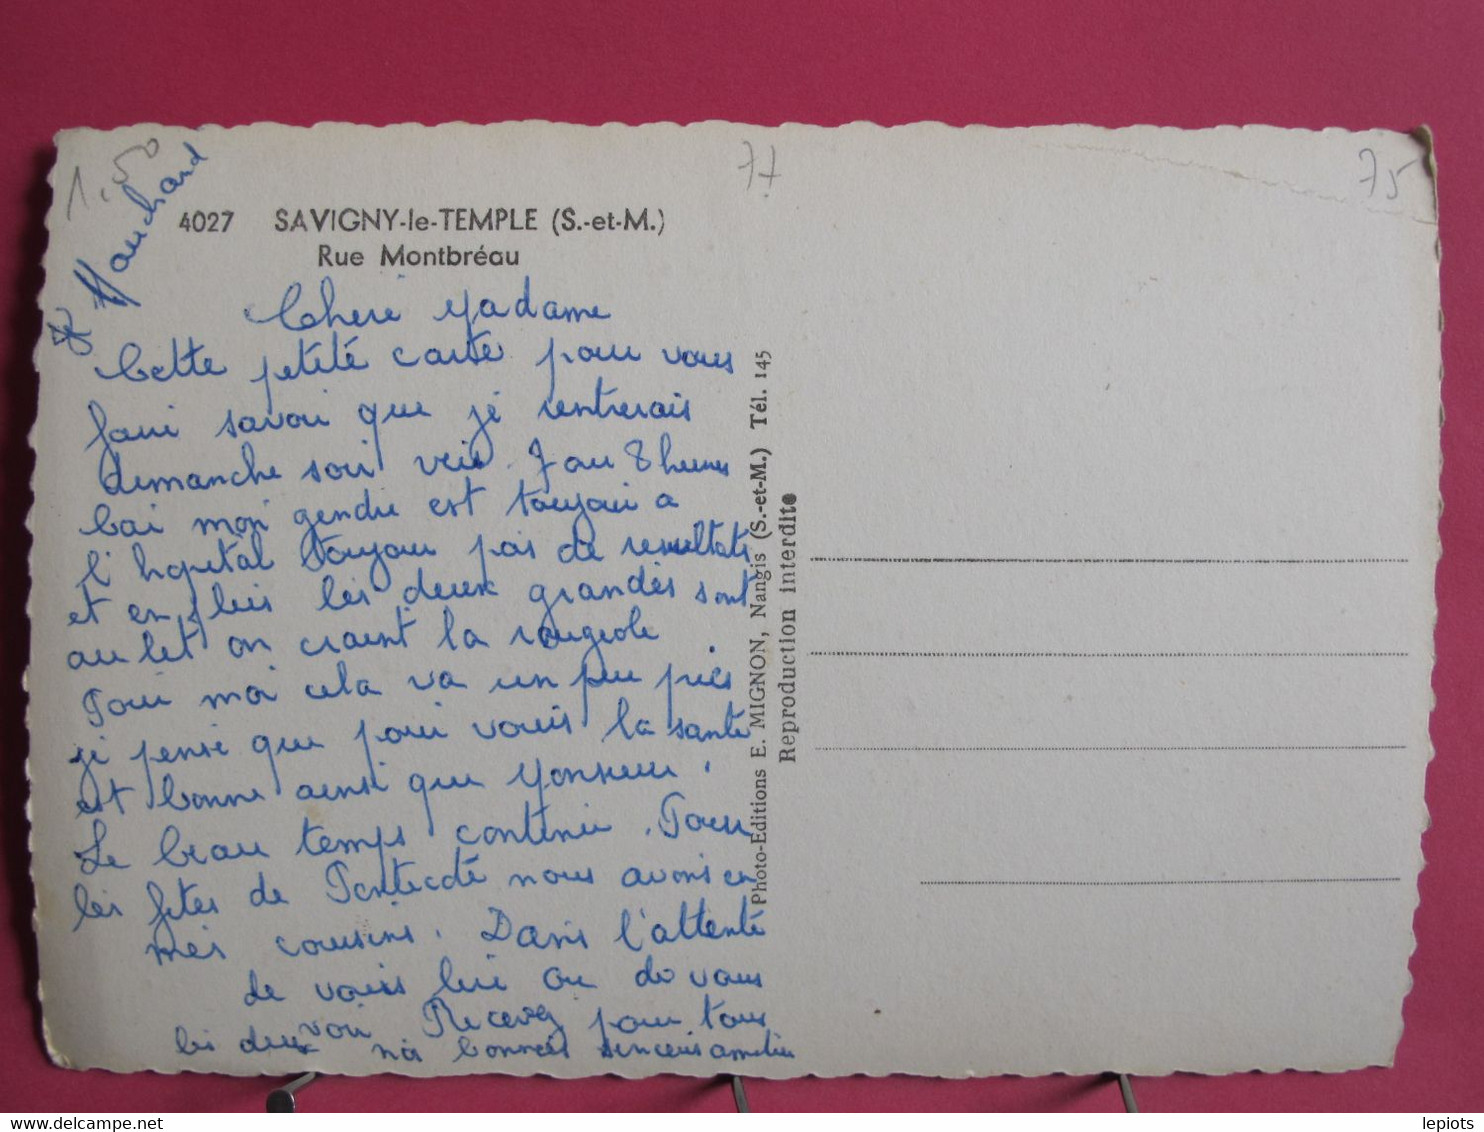 1.50
77
75
Mauchard
4027 SAVIGNY-le-TEMPLE (S.-et-M.)
Rue Montbréau
Chere Madame
Cette petite carte pour vous
faire savoir que je rentrerais
dimanche soir vers 7 ou 8 heures
Car mon gendre est toujour a
l'hopital toujour pas de resultats
et en plus les deux grandes sont
au lit on craint la rougeole
Pour moi cela va un peu pres
je pense que pour vous la santé
est bonne ainsi que Monsieur.
Le beau temps continu. Pour
les fetes de Pentecote nous avons eu
mes cousins. Dans l'attente
de vous lire ou de vous
voir Recevez pour tous
les deux nos bonnes sinceres amitiés
Photo-Editions E. MIGNON, Nangis (S.-et-M.) Tél. 145
Reproduction interdite
Delcampe.net
lepiots